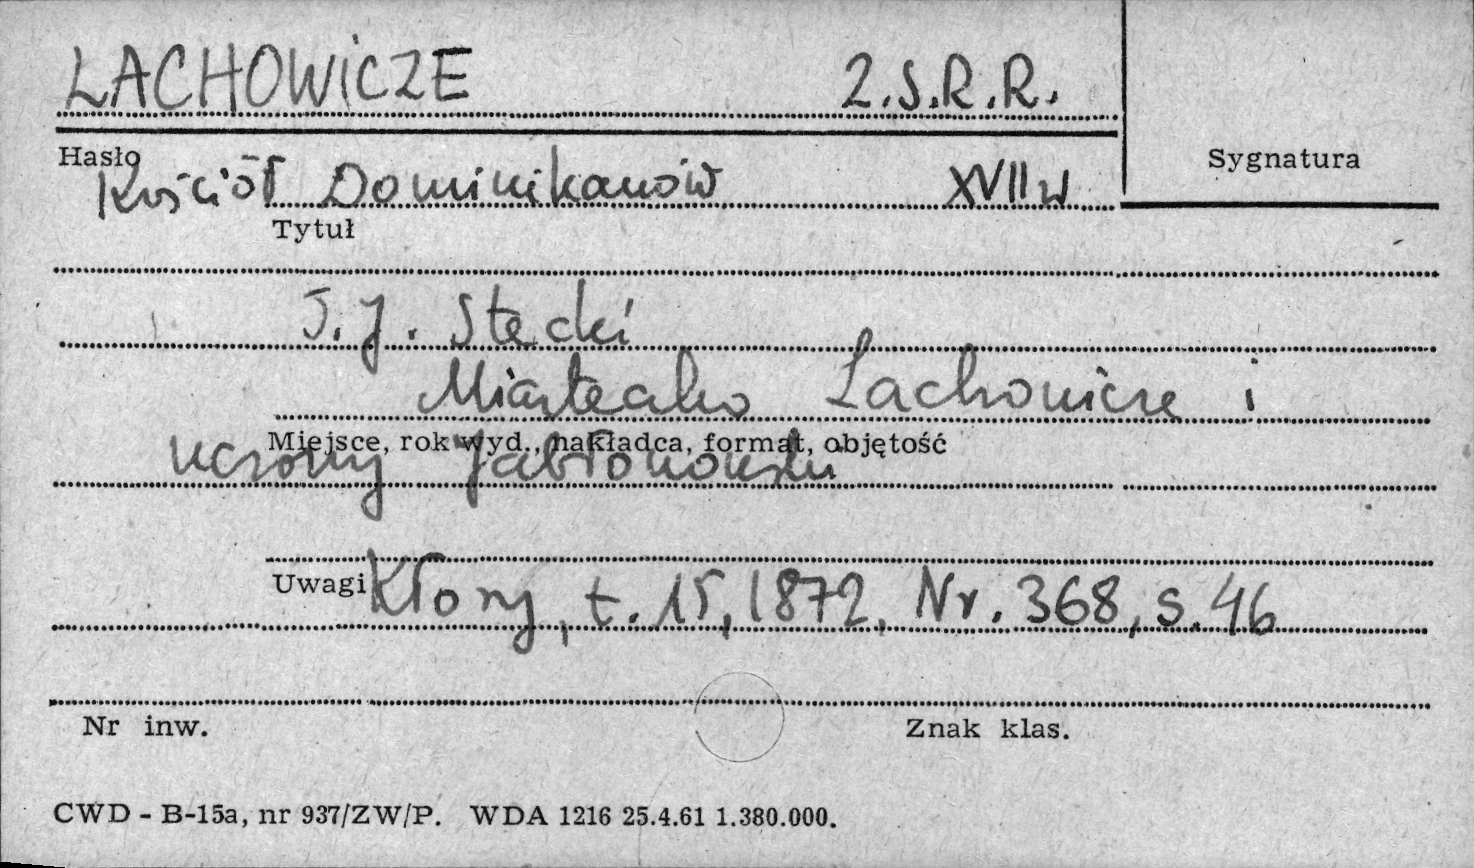 LACHOWICZE Z.S.R.R.
Hasło
Sygnatura
Kościół Dominikanów XVII w
Tytuł
T.J. Stecki
Miasteczko Lachowicze i
Miejsce, rok wyd., nakładca, format, objętość
uczony Jabłonowski
Uwagi
Kłosy, t. 15, 1872, Nr. 368, s. 46
Nr inw. Znak klas.
CWD - B-15a, nr 937/ZW/P. WDA 1216 25.4.61 1.380.000.